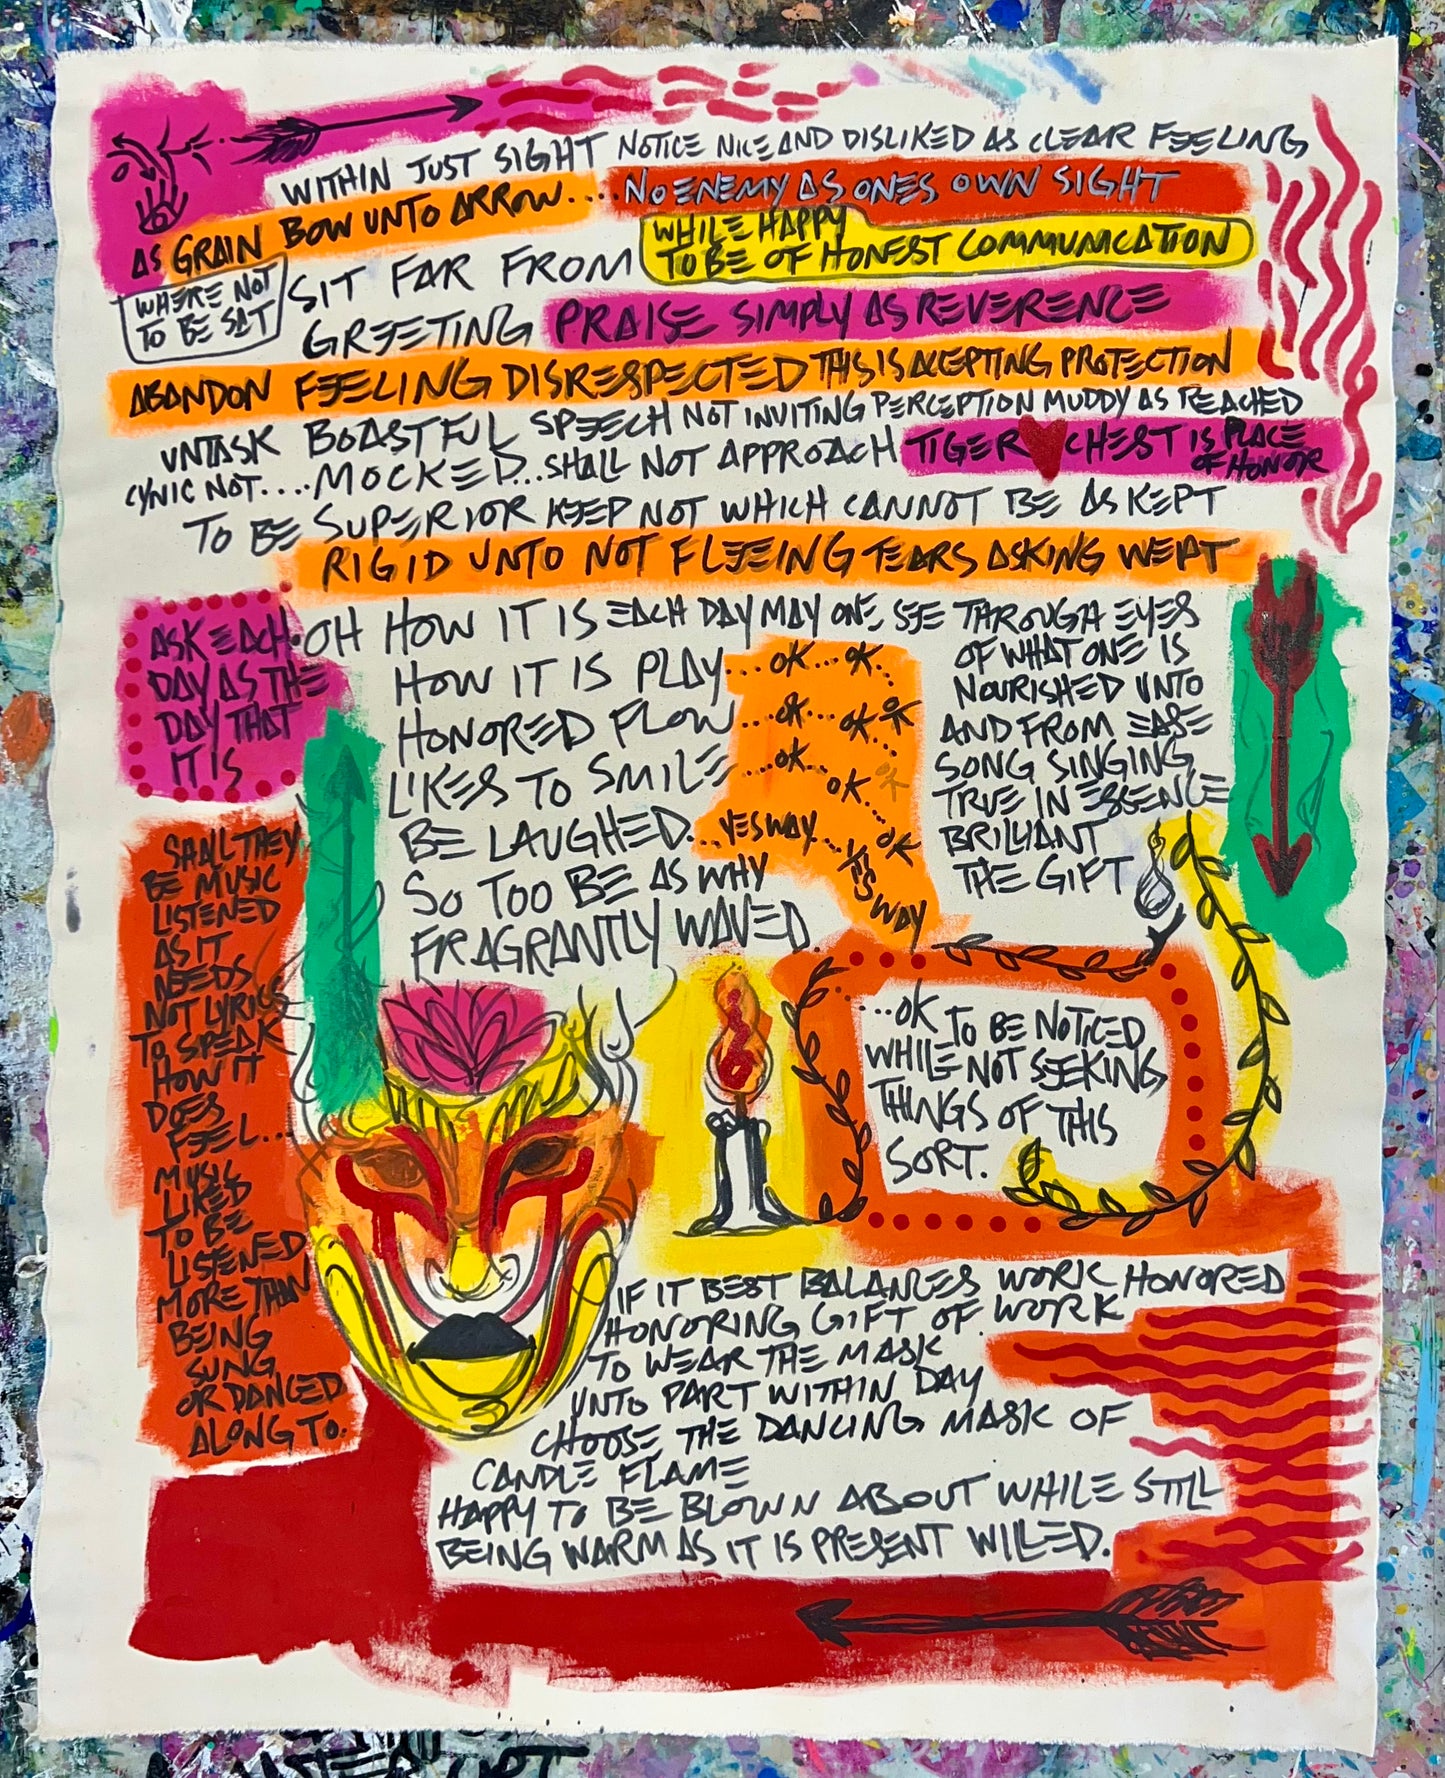 WITHIN JUST SIGHT NOTICE NICE AND DISLIKED AS CLEAR FEELING
AS GRAIN BOW UNTO ARROW....NO ENEMY AS ONES OWN SIGHT
WHERE NOT
TO BE SAT
SIT FAR FROM
WHILE HAPPY
TO BE OF HONEST COMMUNICATION
GREETING PRAISE SIMPLY AS REVERENCE
ABANDON FEELING DISRESPECTED THIS IS ACCEPTING PROTECTION
UNTASK BOASTFUL SPEECH NOT INVITING PERCEPTION MUDDY AS REACHED
CYNIC NOT....MOCKED...SHALL NOT APPROACH TIGER CHEST IS PLACE
OF HONOR
TO BE SUPERIOR KEEP NOT WHICH CANNOT BE AS KEPT
RIGID UNTO NOT FLEEING TEARS ASKING WEPT
ASK EACH
DAY AS THE
DAY THAT
IT IS
OH HOW IT IS EACH DAY MAY ONE SEE THROUGH EYES
OF WHAT ONE IS
NOURISHED UNTO
AND FROM EASE
SONG SINGING
TRUE IN ESSENCE
BRILLIANT
THE GIFT
HOW IT IS PLAY...OK...OK
HONORED FLOW...OK...OK OK
LIKES TO SMILE...OK...
OK... OK
BE LAUGHED...YES WAY...OK
YES WAY
SO TOO BE AS WHY
FRAGRANTLY WAVED.
SHALL THEY
BE MUSIC
LISTENED
AS IT
NEEDS
NOT LYRICS
TO SPEAK
HOW IT
DOES
FEEL...
MUSIC
LIKED
TO BE
LISTENED
MORE THAN
BEING
SUNG
OR DANCED
ALONG TO.
...OK TO BE NOTICED
WHILE NOT SEEKING
THINGS OF THIS
SORT.
IF IT BEST BALANCES WORK HONORED
HONORING GIFT OF WORK
TO WEAR THE MASK
UNTO PART WITHIN DAY
CHOOSE THE DANCING MASK OF
CANDLE FLAME
HAPPY TO BE BLOWN ABOUT WHILE STILL
BEING WARM AS IT IS PRESENT WILLED.